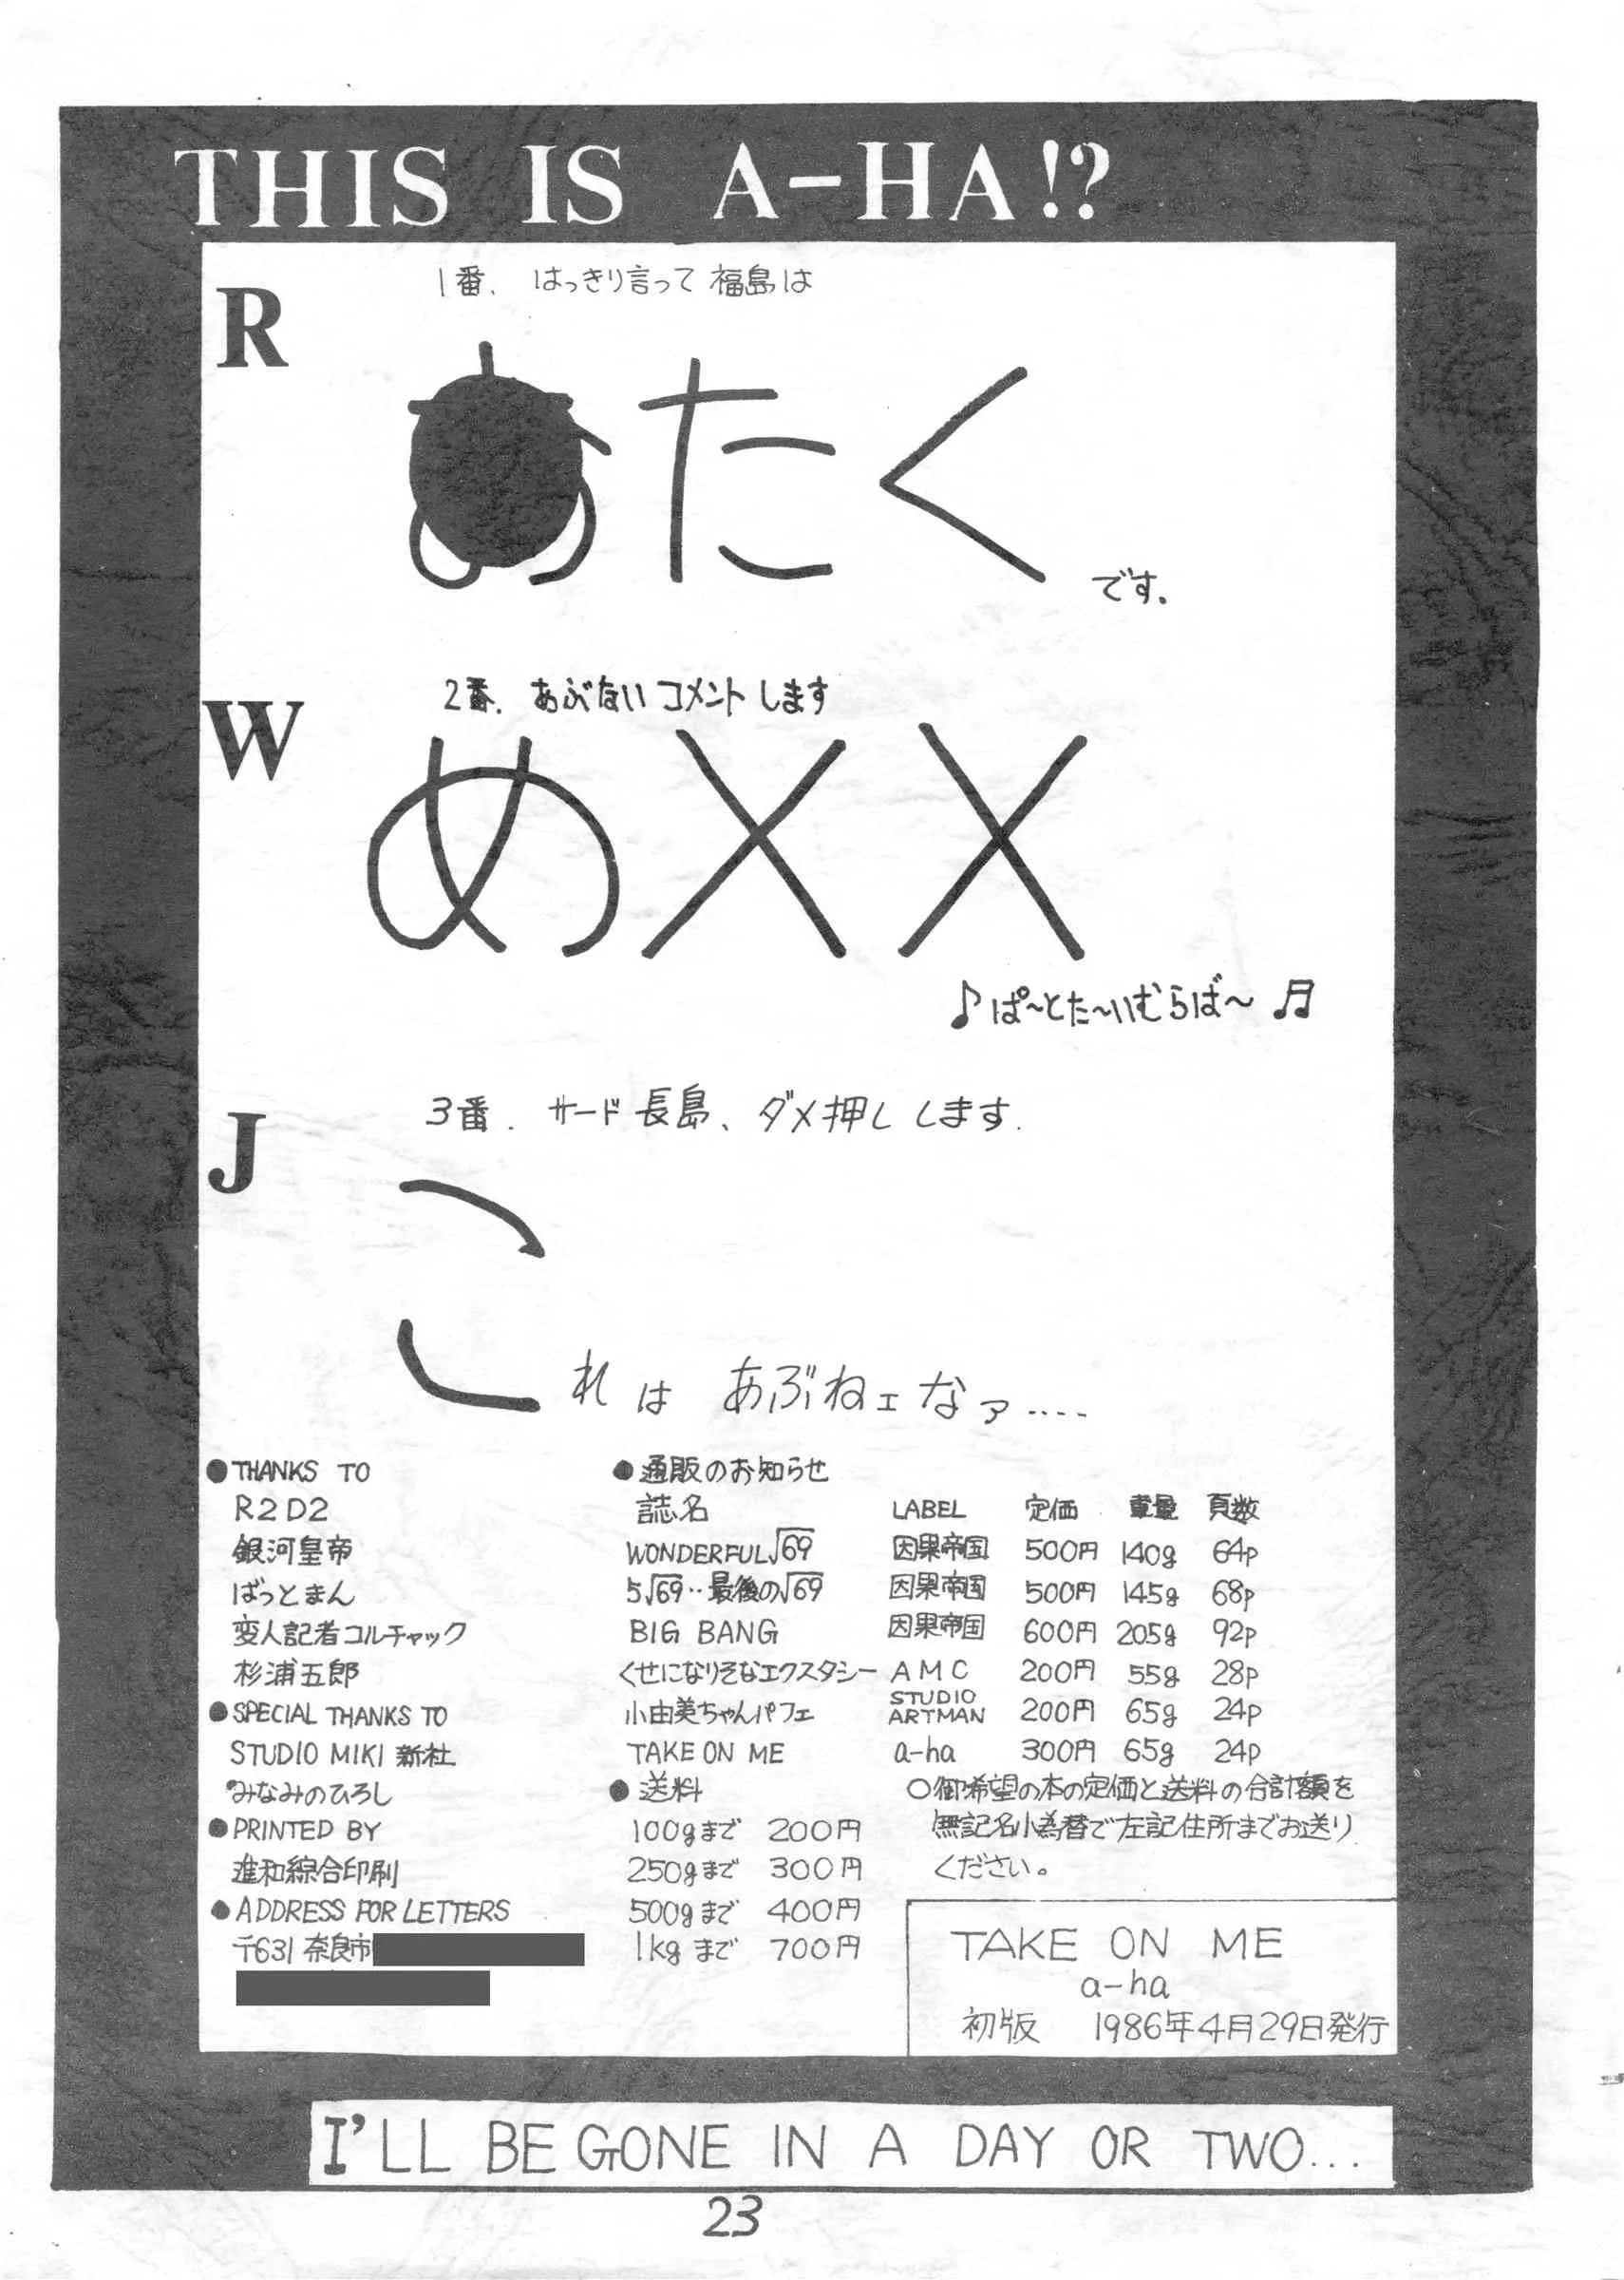 THIS IS A-HA!?
R
1番. はっきり言って福島は
たく
です.
W
2番. あぶないコメントします
め××
♪ぱ～とた～いむらば～♬
J
3番. サード長島、ダメ押しします.
これは あぶねェなァ‥‥
●THANKS TO
R2D2
銀河皇帝
ばっとまん
変人記者コルチャック
杉浦五郎
●SPECIAL THANKS TO
STUDIO MIKI 新社
みなみのひろし
●PRINTED BY
進和綜合印刷
●ADDRESS FOR LETTERS
〒631 奈良市
●通販のお知らせ
誌名 LABEL 定価 重量 頁数
WONDERFUL√69 因果帝国 500円 140g 64p
5√69‥最後の√69 因果帝国 500円 145g 68p
BIG BANG 因果帝国 600円 205g 92p
くせになりそなエクスタシー AMC 200円 55g 28p
小由美ちゃんパフェ STUDIO ARTMAN 200円 65g 24p
TAKE ON ME a-ha 300円 65g 24p
●送料
100gまで 200円
250gまで 300円
500gまで 400円
1kgまで 700円
○御希望の本の定価と送料の合計額を
無記名小為替で左記住所までお送り
ください。
TAKE ON ME
a-ha
初版 1986年4月29日発行
I'LL BE GONE IN A DAY OR TWO...
23